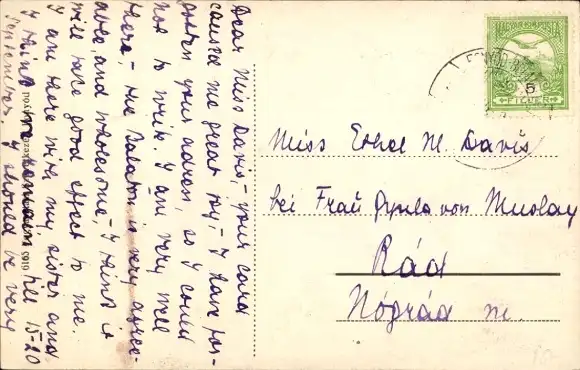 Dear Miss Davis, – your card
caused me great joy, – I have for-
gotten your adress, so I could
not to write. I am very well
there, – the Balaton is very agree-
able, and wholesome, – I think it
will take good effect to me.
I am there with my sister and
I think we remain till 15–20
September. I should be very
1916
MAGYAR KIR. POSTA
5
FILLÉR
Miss Ethel M. Davis
bei Frau Gyula von Muslay
Rád
Nógrád m.